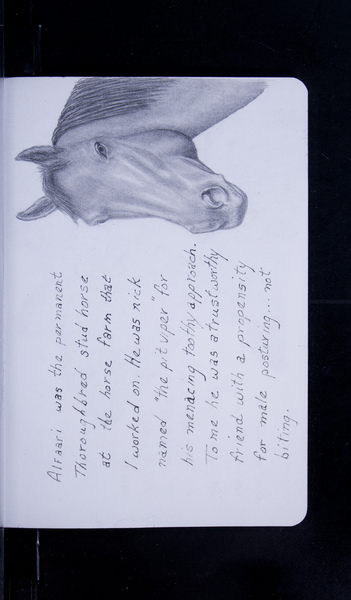 Alfaari was the permanent
Thoroughbred stud horse
at the horse farm that
I worked on. He was nick
named "the pit viper" for
his menacing toothy approach.
To me he was a trustworthy
friend with a propensity
for male posturing... not
biting.